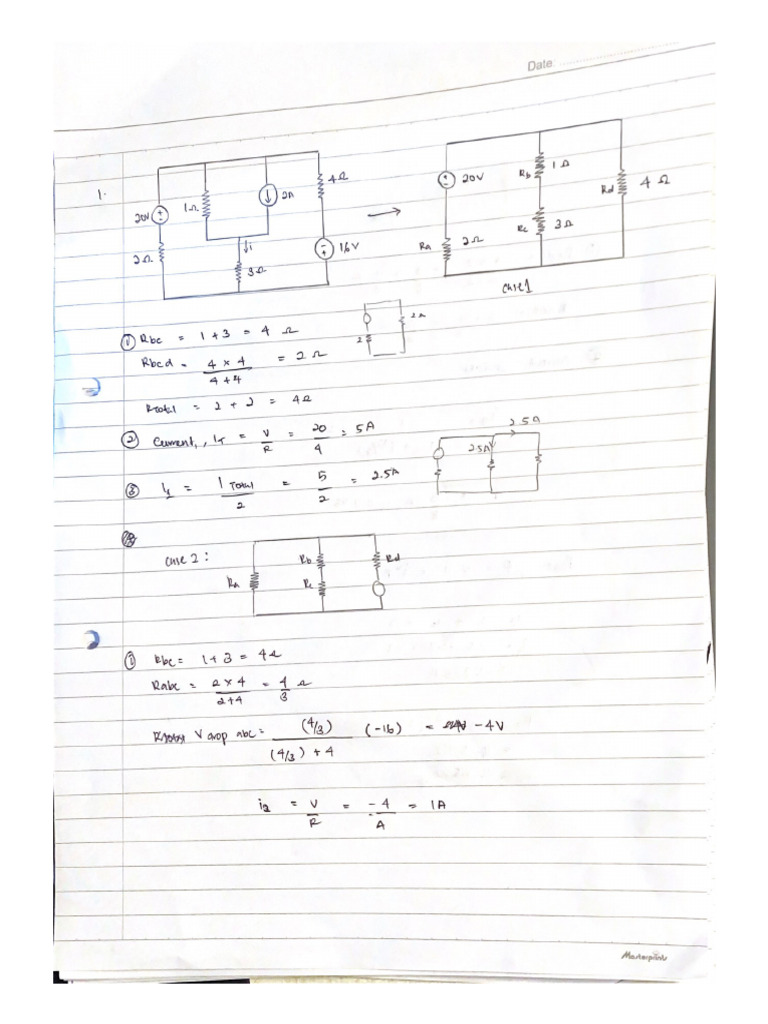 Date:
1.
20V 1Ω 2A 4Ω
2Ω i 3Ω 16V
20V Rb 1Ω Rd 4Ω
Ra 2Ω Rc 3Ω
Case 1
① Rbc = 1 + 3 = 4 Ω
2 2Ω
Rbcd = 4 × 4 / 4 + 4 = 2 Ω
Rtotal = 2 + 2 = 4Ω
② Current, IT = V / R = 20 / 4 = 5A
2.5A 2.5A
③ I1 = I Total / 2 = 5 / 2 = 2.5A
Case 2 :
Ra Rb Rc Rd
① Rbc = 1 + 3 = 4Ω
Rabc = 2 × 4 / 2+4 = 4 / 3 Ω
V drop abc = (4/3) / (4/3) + 4 (-16) = -4V
i2 = V / R = -4 / 4 = 1A
Masterprints